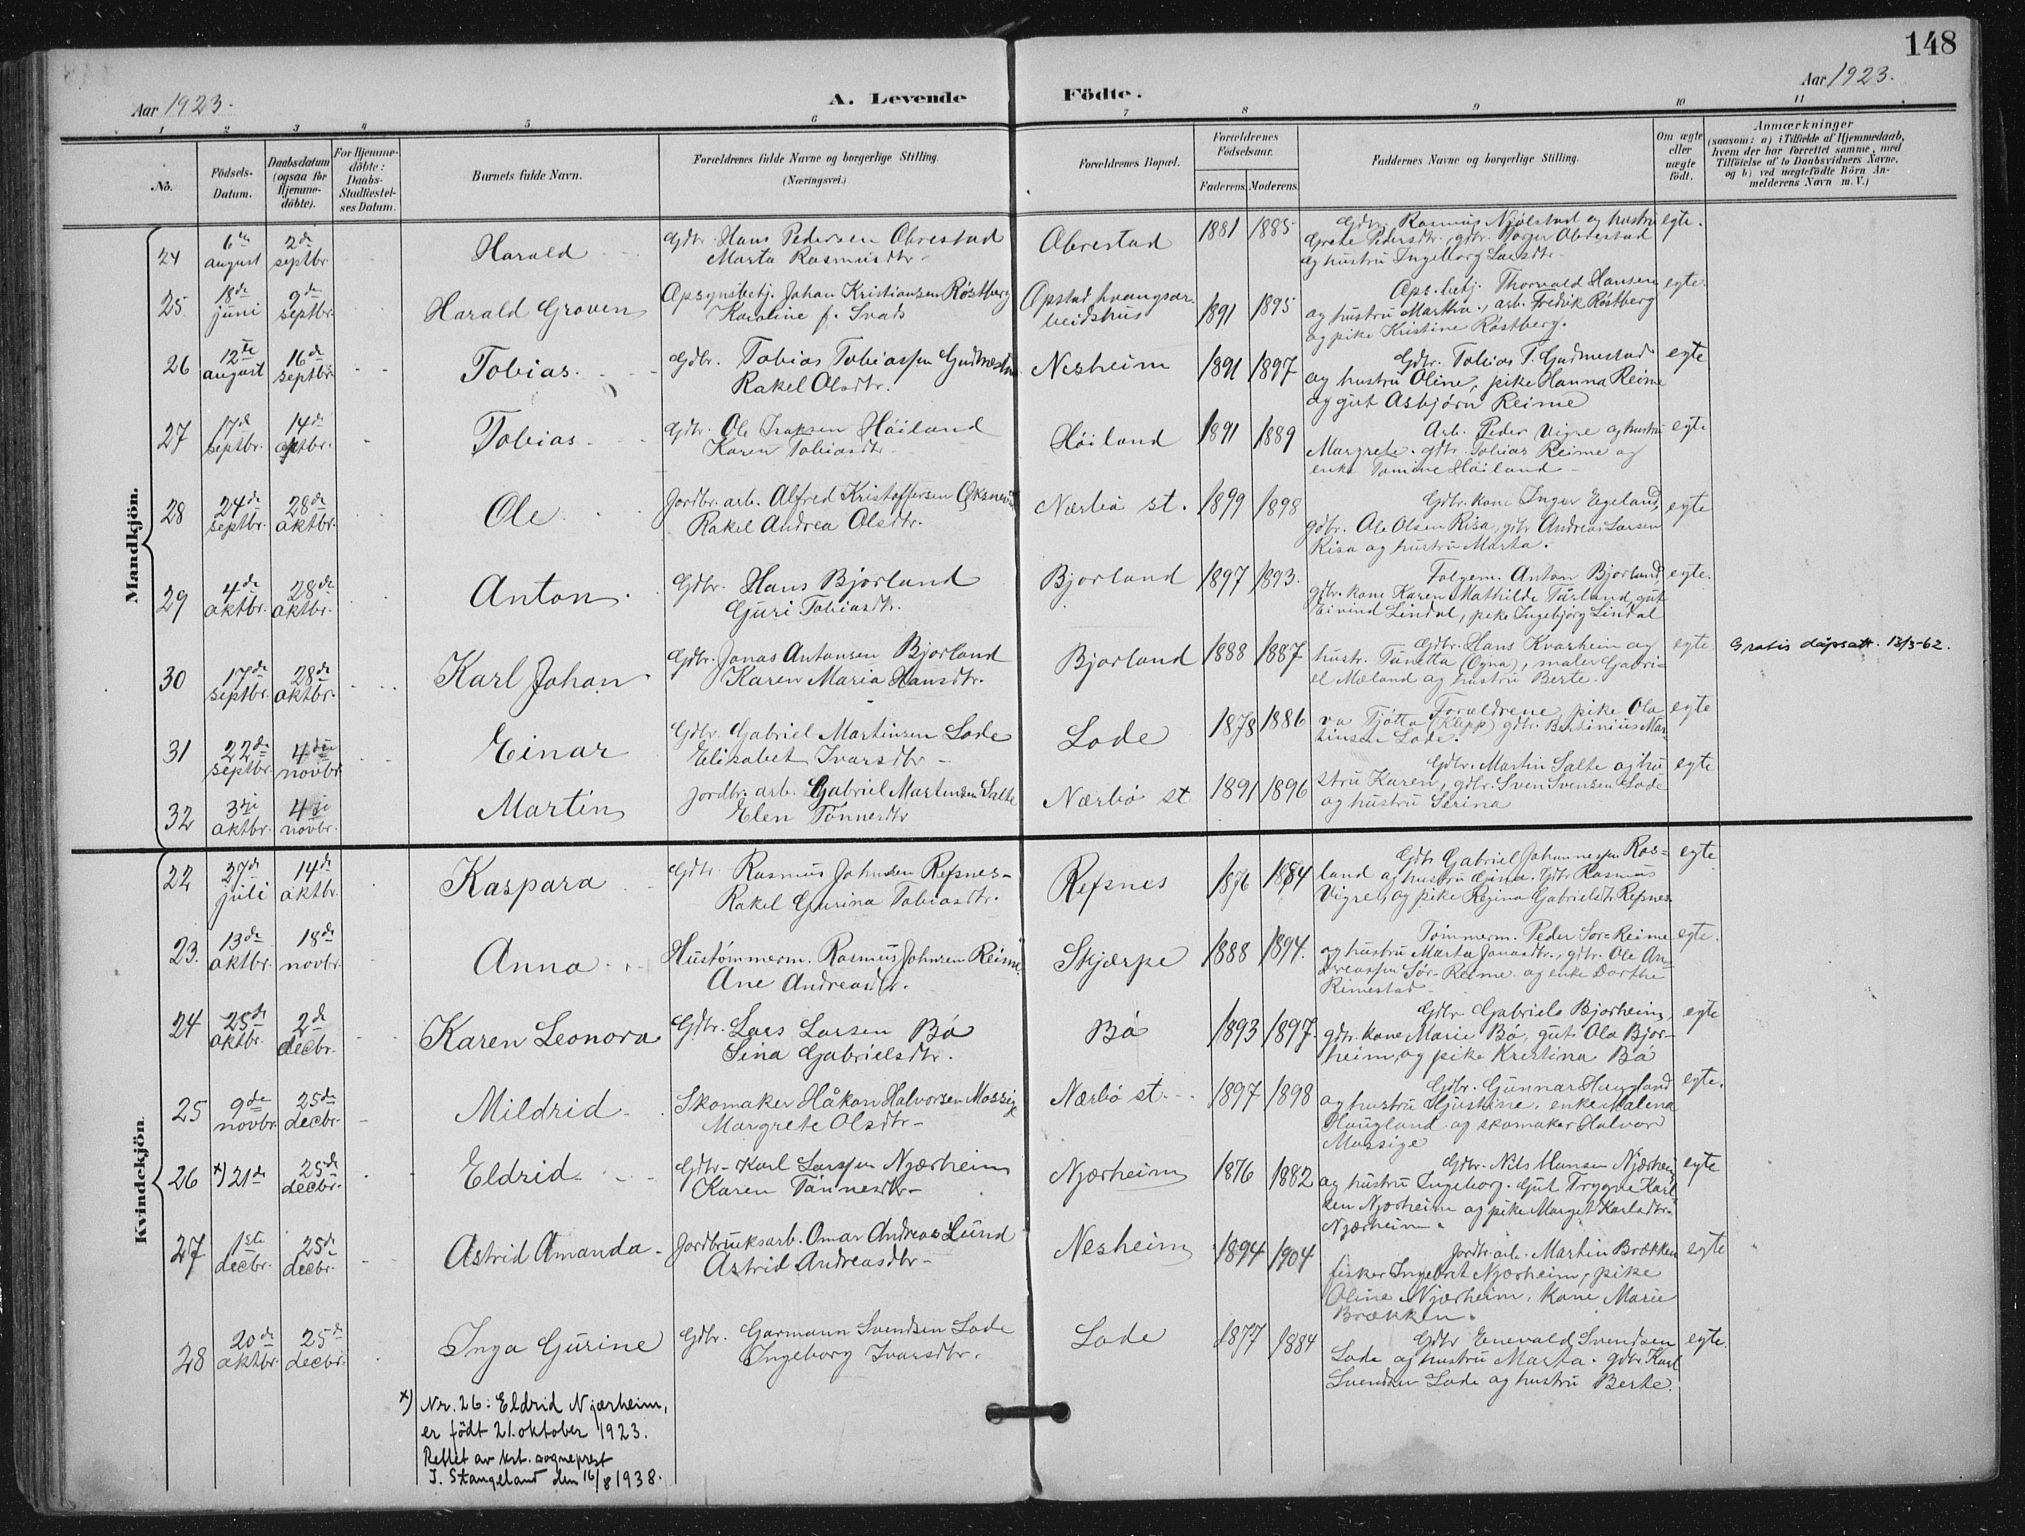 148
Aar 1923.
A. Levende
Födte.
Aar 1923.
1 2 3 4 5 6 7 8 9 10 11
No.
Födsels-Datum.
Daabsdatum (ogsaa for Hjemme-döbte).
For Hjemme-döbte: Daabs-Stadfæstel-ses Datum.
Barnets fulde Navn.
Forældrenes fulde Navne og borgerlige Stilling.
(Næringsvei.)
Forældrenes Bopæl.
Forældrenes Födselsaar.
Faderens. Moderens.
Faddernes Navne og borgerlige Stilling.
Om ægte eller uægte födt.
Anmærkninger
(saasom: a) i Tilfælde af Hjemmedaab,
hvem der har forrettet samme, med
Tilföielse af to Daabsvidners Navne,
og b) ved uægtefödte Börn An-
melderens Navn m. V.)
Mandkjön.
24 6te august 2de septbr. Harald
Gdbr. Hans Pedersen Obrestad
Marta Rasmusdtr.
Obrestad 1881 1885
Gdbr. Rasmus Njølstad og hustru
Grete Pedersdtr., gdbr. Obrestad
og hustru Ingeborg Larsdtr.
egte.
25 18de juni 9de septbr. Harald Groven
Opsynsbetj. Johan Kristiansen Røstberg
Karoline f. Svads
Opstad tvangsar-
beidshus
1891 1895
Ops. betj. Thorvald Hansen
og hustru Martha, arb. Fredrik Røstberg
og pike Kristine Røstberg.
egte.
26 12te august 16de septbr. Tobias
Gdbr. Tobias Tobiassen Gudmestad
Rakel Olsdtr.
Nesheim 1891 1897
Gdbr. Tobias T. Gudmestad
og hustru Oline, pike Hanna Reime
og gut Asbjørn Reime
egte
27 17de septbr. 14de oktbr. Tobias
Gdbr. Ole Isaksen Høiland
Karen Tobiasdtr.
Høiland 1891 1889
Arb. Peder Vigre og hustru
Margrete. gdbr. Tobias Reime og
enke Tomine Høiland
egte
28 24de septbr. 28de oktbr. Ole
Jordbr. arb. Alfred Kristoffersen
Rakel Andrea Olsdtr.
Nærbø st. 1899 1898
Gdbr. kone Inger Egeland,
gdbr. Ole Olsen Risa, gdbr. Andreas Larsen
Risa og hustru Marta.
egte
29 4de oktbr. 28de oktbr. Anton
Gdbr. Hans Bjorland
Guri Tobiasdtr.
Bjorland 1897 1893.
Folgem. Anton Bjorland,
gdbr. kone Karen Mathilde Türland, gut
Eivind Lindal, pike Ingebjørg Lindal
egte.
30 17de septbr. 28de oktbr. Karl Johan
Gdbr. Jonas Antonsen Bjorland
Karen Maria Hansdtr.
Bjorland 1888 1887
Gdbr. Hans Kvarheim og
hustr. Tunetta (Ogna), maler Gabri-
el Mæland og hustru Berte.
egte.
Gratis dåpsatt. 13/3-62.
31 22de septbr. 4de novbr. Einar
Gdbr. Gabriel Martinsen Lode
Elisabet Ivarsdtr
Lode 1878 1886
Forældrene, pike Ola
va Tjøtta (Klepp) gdbr. Bertinius Mar
tinsen Lode.
egte
32 3die oktbr. 4de novbr. Martin
Jordbr. arb. Gabriel Martinsen Salte
Elen Tönnesdtr
Nærbø st 1891 1896
Gdbr. Martin Salte og hu-
stru Karen, gdbr. Sven Svensen Lode
og hustru Serina
egte
Kvindekjön.
22 27de juli 14de oktbr. Kaspara
Gdbr. Rasmus Johnsen Refsnes
Rakel Gurina Tobiasdtr.
Refsnes 1876 1884
Gdbr Gabriel Johannessen Ros-
land og hustru Gina. Gdbr Rasmus
Vigre, og pike Regina Gabrielsdtr Refsnes
egte
23. 13de oktbr. 18de novbr. Anna
Hustømmerm. Rasmus Johnsen Reime
Ane Andreasdtr.
Skjærpe 1888 1894.
Tömmerm. Peder Sør-Reime
og hustru Marta Jonasdtr., gdbr. Ole An-
dreassen Sør-Reime og enke Dorthe
Rimestad
egte.
24 25de oktbr. 2de decbr. Karen Leonora
Gdbr. Lars Larsen Bø
Sina Gabrielsdtr.
Bø 1893 1897.
Gdbr Gabriels Bjorheim,
gdbr. kone Marie Bø, gut Ola Bjor-
heim, og pike Kristina Bø
egte
25 9de novbr. 25de decbr. Mildrid
Skomaker Håkon Halvorsen Mossige
Margrete Olsdtr
Nærbø st. 1897 1898
Gdbr. Gunnar Haugland
og hustru Gjustine, enke Malena
Haugland og skomaker Halvor
Mossige
egte.
26 x) 21de 25de decbr. Eldrid
Gdbr. Karl Larssen Njærheim
Karen Tönnesdtr
Njærheim 1876 1882
Gdbr. Nils Hansen Njærheim
og hustru Ingeborg. Gut Trygve Karl-
sen Njærheim og pike Marget Karlsdtr.
Njærheim.
egte
27 1ste decbr. 25de decbr. Astrid Amanda
Jordbruksarb. Omar Andreas Lund
Astrid Andreasdtr
Nesheim 1894 1904
Jordbr. arb. Martin Brækken
fisker Ingebret Njærheim, pike
Oline Njærheim, kone Marie
Brækken.
egte
28 20de oktbr. 25de decbr. Inga Gurine
Gdbr. Garmann Svendsen Lode
Ingeborg Ivarsdtr.
Lode 1877 1884
Gdbr Enevald Svendsen
Lode og hustru Marta. gdbr Karl
Svendsen Lode og hustru Berte.
egte.
x) Nr. 26: Eldrid Njærheim,
er født 21. oktober 1923.
Rettet av kst. sogneprest
I. Stangeland den 16/8 1938.